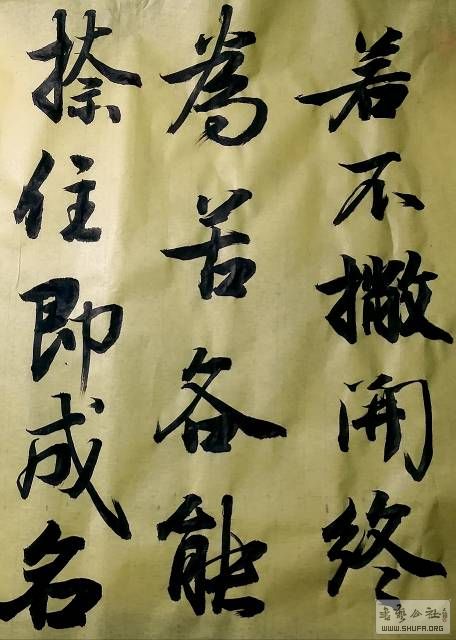 若不撇開終
為苦各能
捺住即成名
书艺公社
WWW.SHUFA.ORG